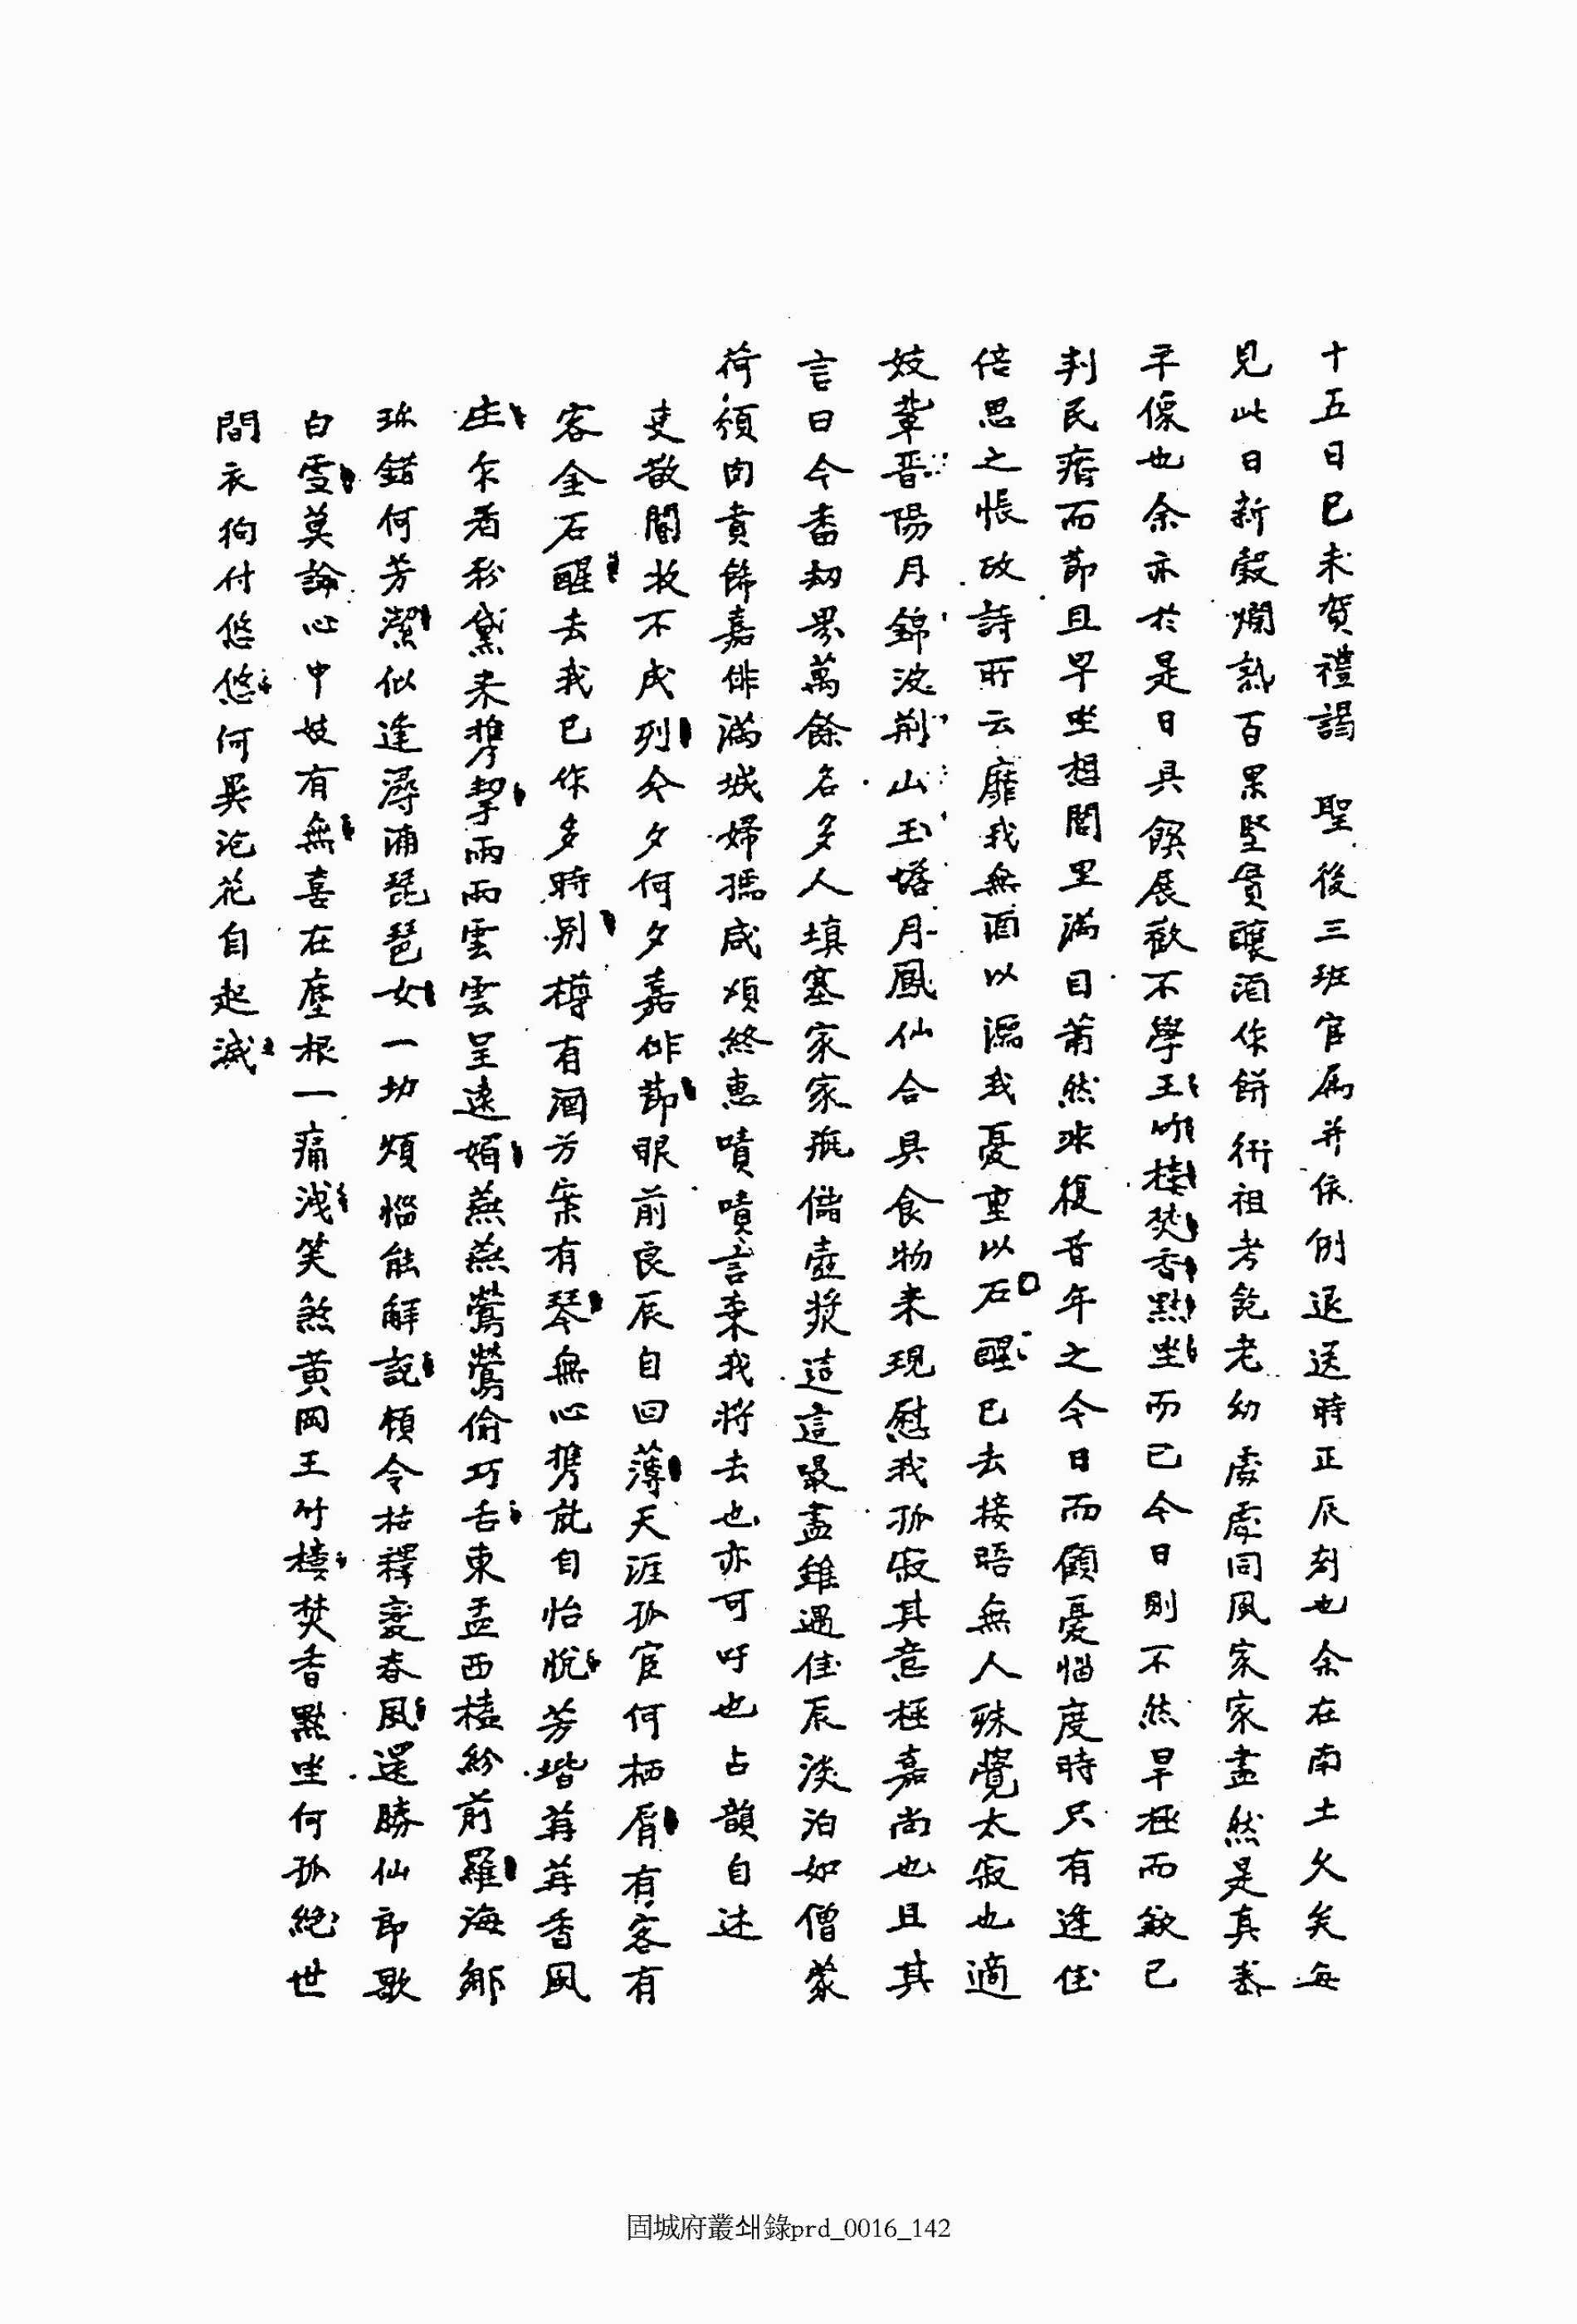 十五日己未賀禮謁 聖後三班官屬并依例退送時正辰刻也余在南土久矣每
見此日新穀爛熟百果堅實釀酒作餠衎祖考飽老幼處處同風家家盡然是真泰
平像也余亦於是日具饌展歡不學王竹樓焚香黙坐而已今日則不然旱極而歉已
判民瘠而節且早坐想閭里滿目蕭然非復昔年之今日而顧憂惱度時只有逢佳
倍思之悵故詩所云靡我無酒以瀉我憂重以石醒已去接晤無人殊覺太寂也適
妓輩晋陽月錦波荊山玉蟾月鳳仙合具食物来現慰我孤寂其意極嘉尚也且其
言曰今番劫界萬餘名多人塡塞家家甁儲壺漿這這罄盡雖遇佳辰淡泊如僧蒙
荷頒肉賁餙嘉俳滿城婦孺咸頌終惠嘖嘖言秉我將去也亦可吁也占韻自述
吏散閤收不成列今夕何夕嘉俳節眼前良辰自回薄天涯孤宦何栖屑有客有
客金石醒去我已作多時別樽有酒芳案有琴無心携旨自怡悅芳堦苒苒香風
庄尔看粉黛来携挈雨雨雲雲呈遠媚燕燕鶯鶯偷巧舌東盂西榼紛前羅海鄉
珎錯何芳潔似逢潯浦琵琶女一切煩惱能解說頓令枯稺變春風還勝仙郎歌
白雪莫論心中妓有無喜在塵根一痛洩笑煞黃岡王竹樓焚香黙坐何孤絶世
間衣狗付悠悠何異泡花自起滅
固城府叢쇄錄prd_0016_142